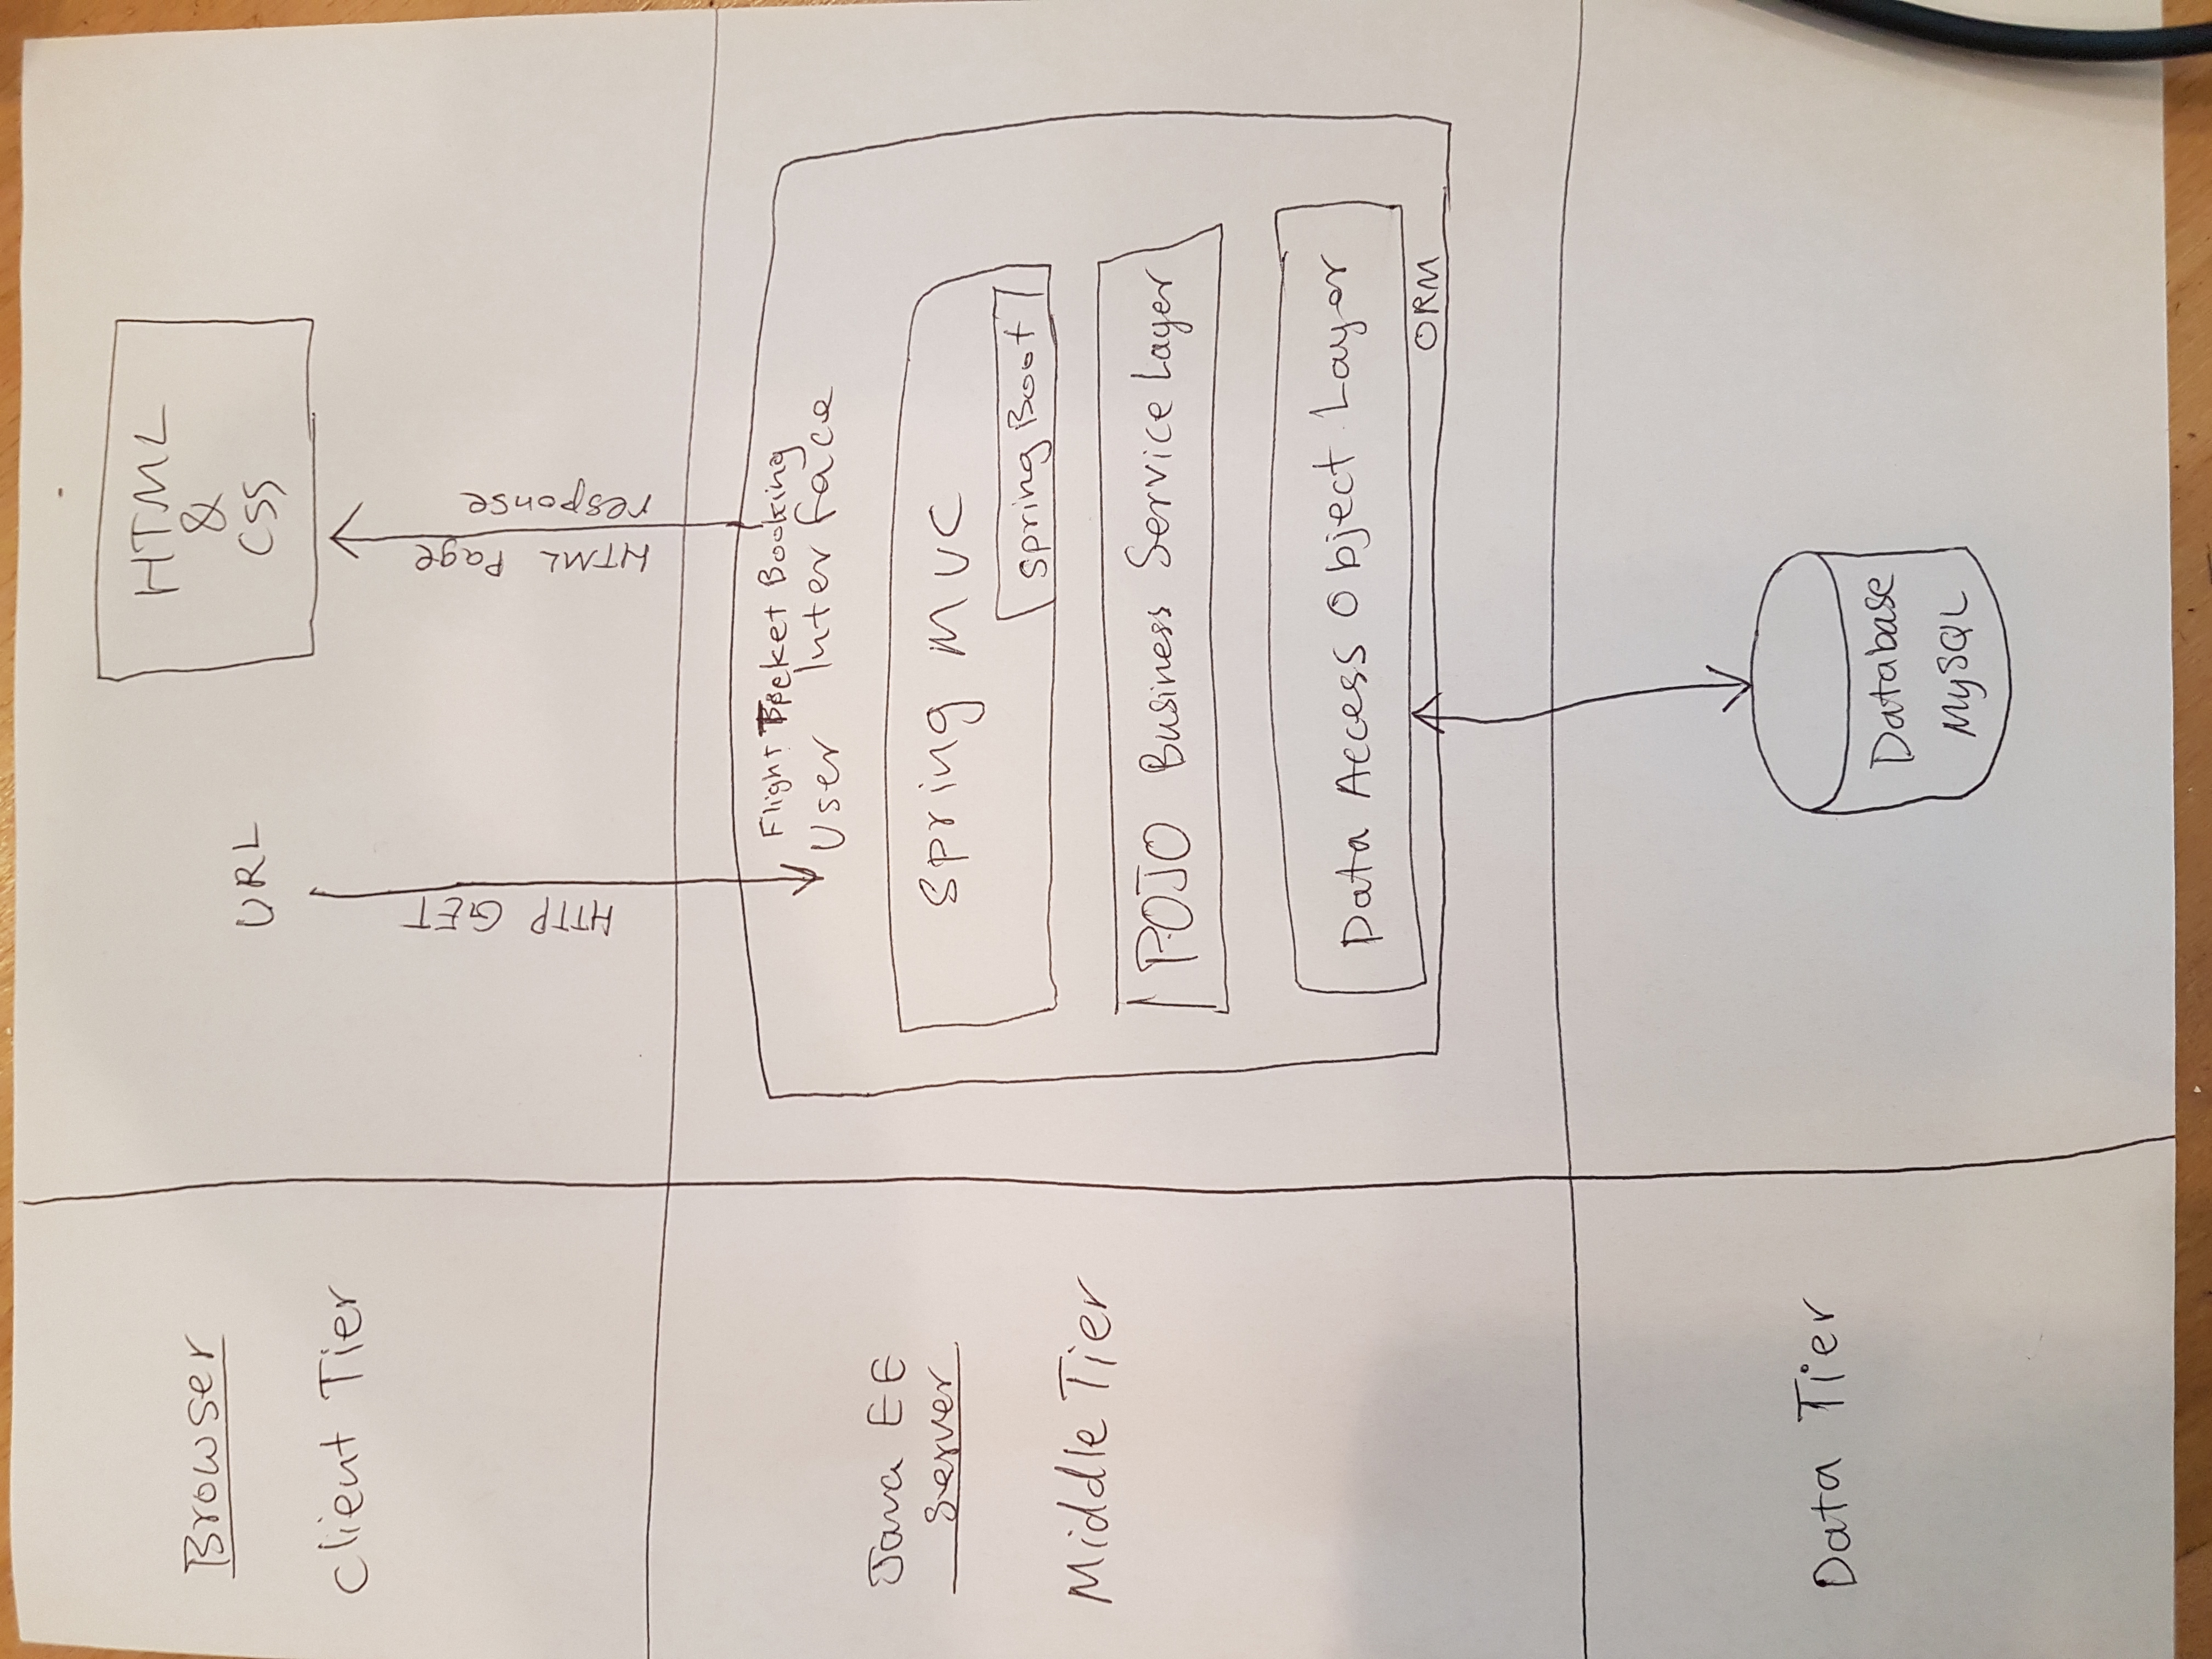 Browser
Client Tier
URL
HTML
&
CSS
HTTP GET
HTML Page
response
Java EE
Server
Middle Tier
Flight Ticket Booking
User Interface
Spring MVC
Spring Boot
POJO Business Service Layer
Data Access Object Layer
ORM
Data Tier
Database
MySQL